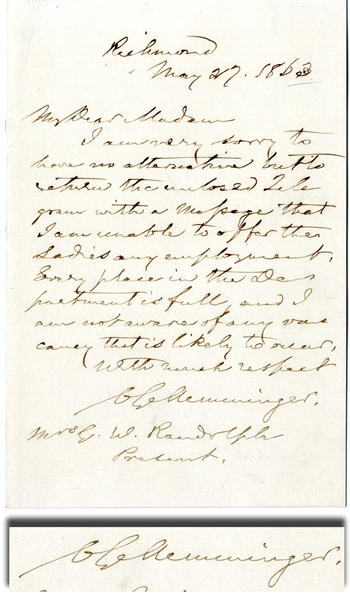 Richmond
May 27. 1863
My Dear Madam
I am very sorry to
have no alternative but to
return the enclosed Tele
gram with a Message that
I am unable to offer the
Ladies any employment.
Every place in the De
partment is full, and I
am not aware of any va
cancy that is likely to occur.
With much respect
C G Memminger.
Mrs G. W. Randolph
Present.
C G Memminger.